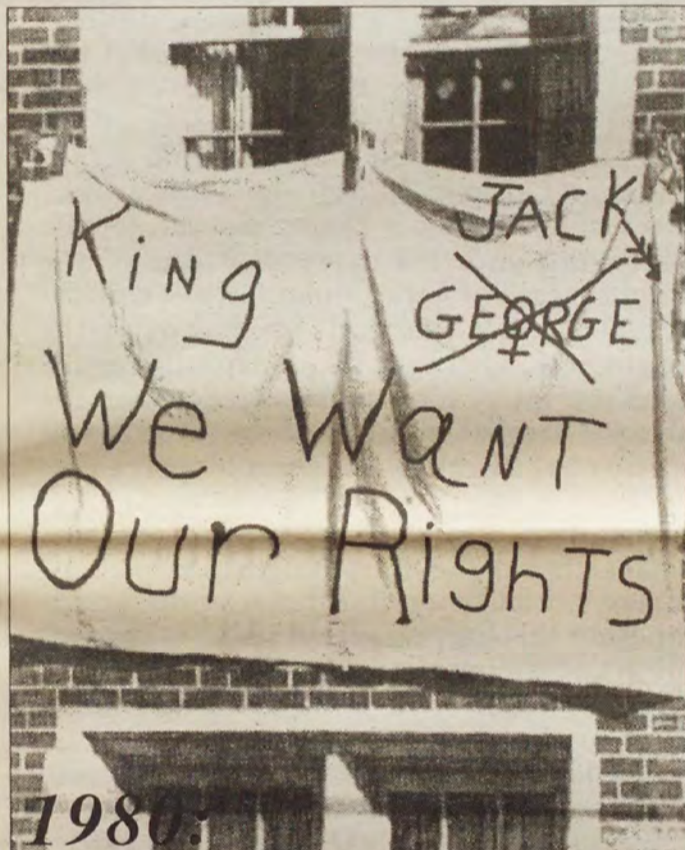 King JACK
GEORGE
We Want
Our Rights
1980: